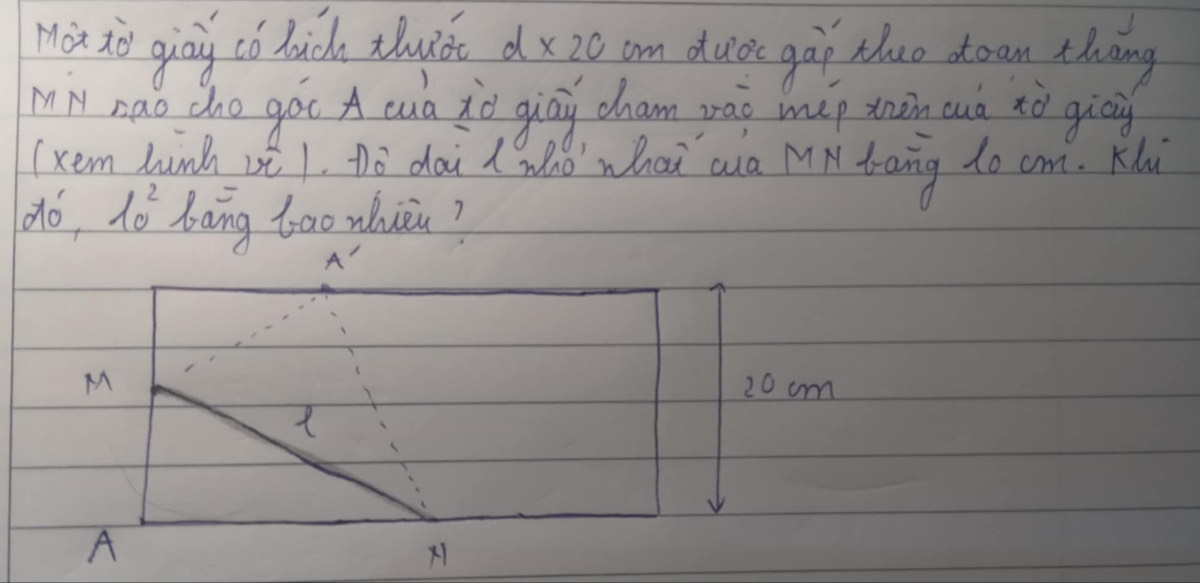 Một tờ giấy có kích thước d x 20 cm được gấp theo đoạn thẳng
MN sao cho góc A của tờ giấy chạm vào mép trên của tờ giấy
(xem hình vẽ). Độ dài l nhỏ nhất của MN bằng lo cm. Khi
đó, lo² bằng bao nhiêu?
A'
M
20 cm
l
A
N